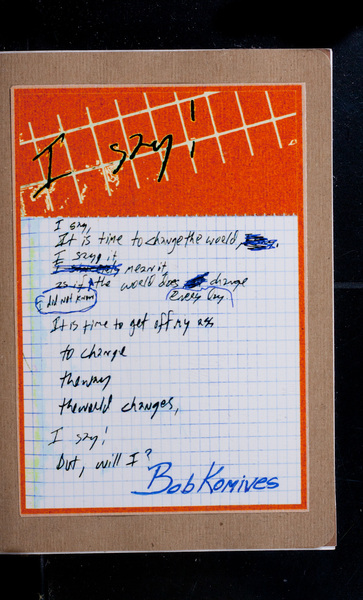 I say!
I say,
It is time to change the world
I say it,
mean it
as if the world does change
I did not know
every day
It is time to get off my ass
to change
the way
the world changes,
I say!
But, will I?
Bob Komives